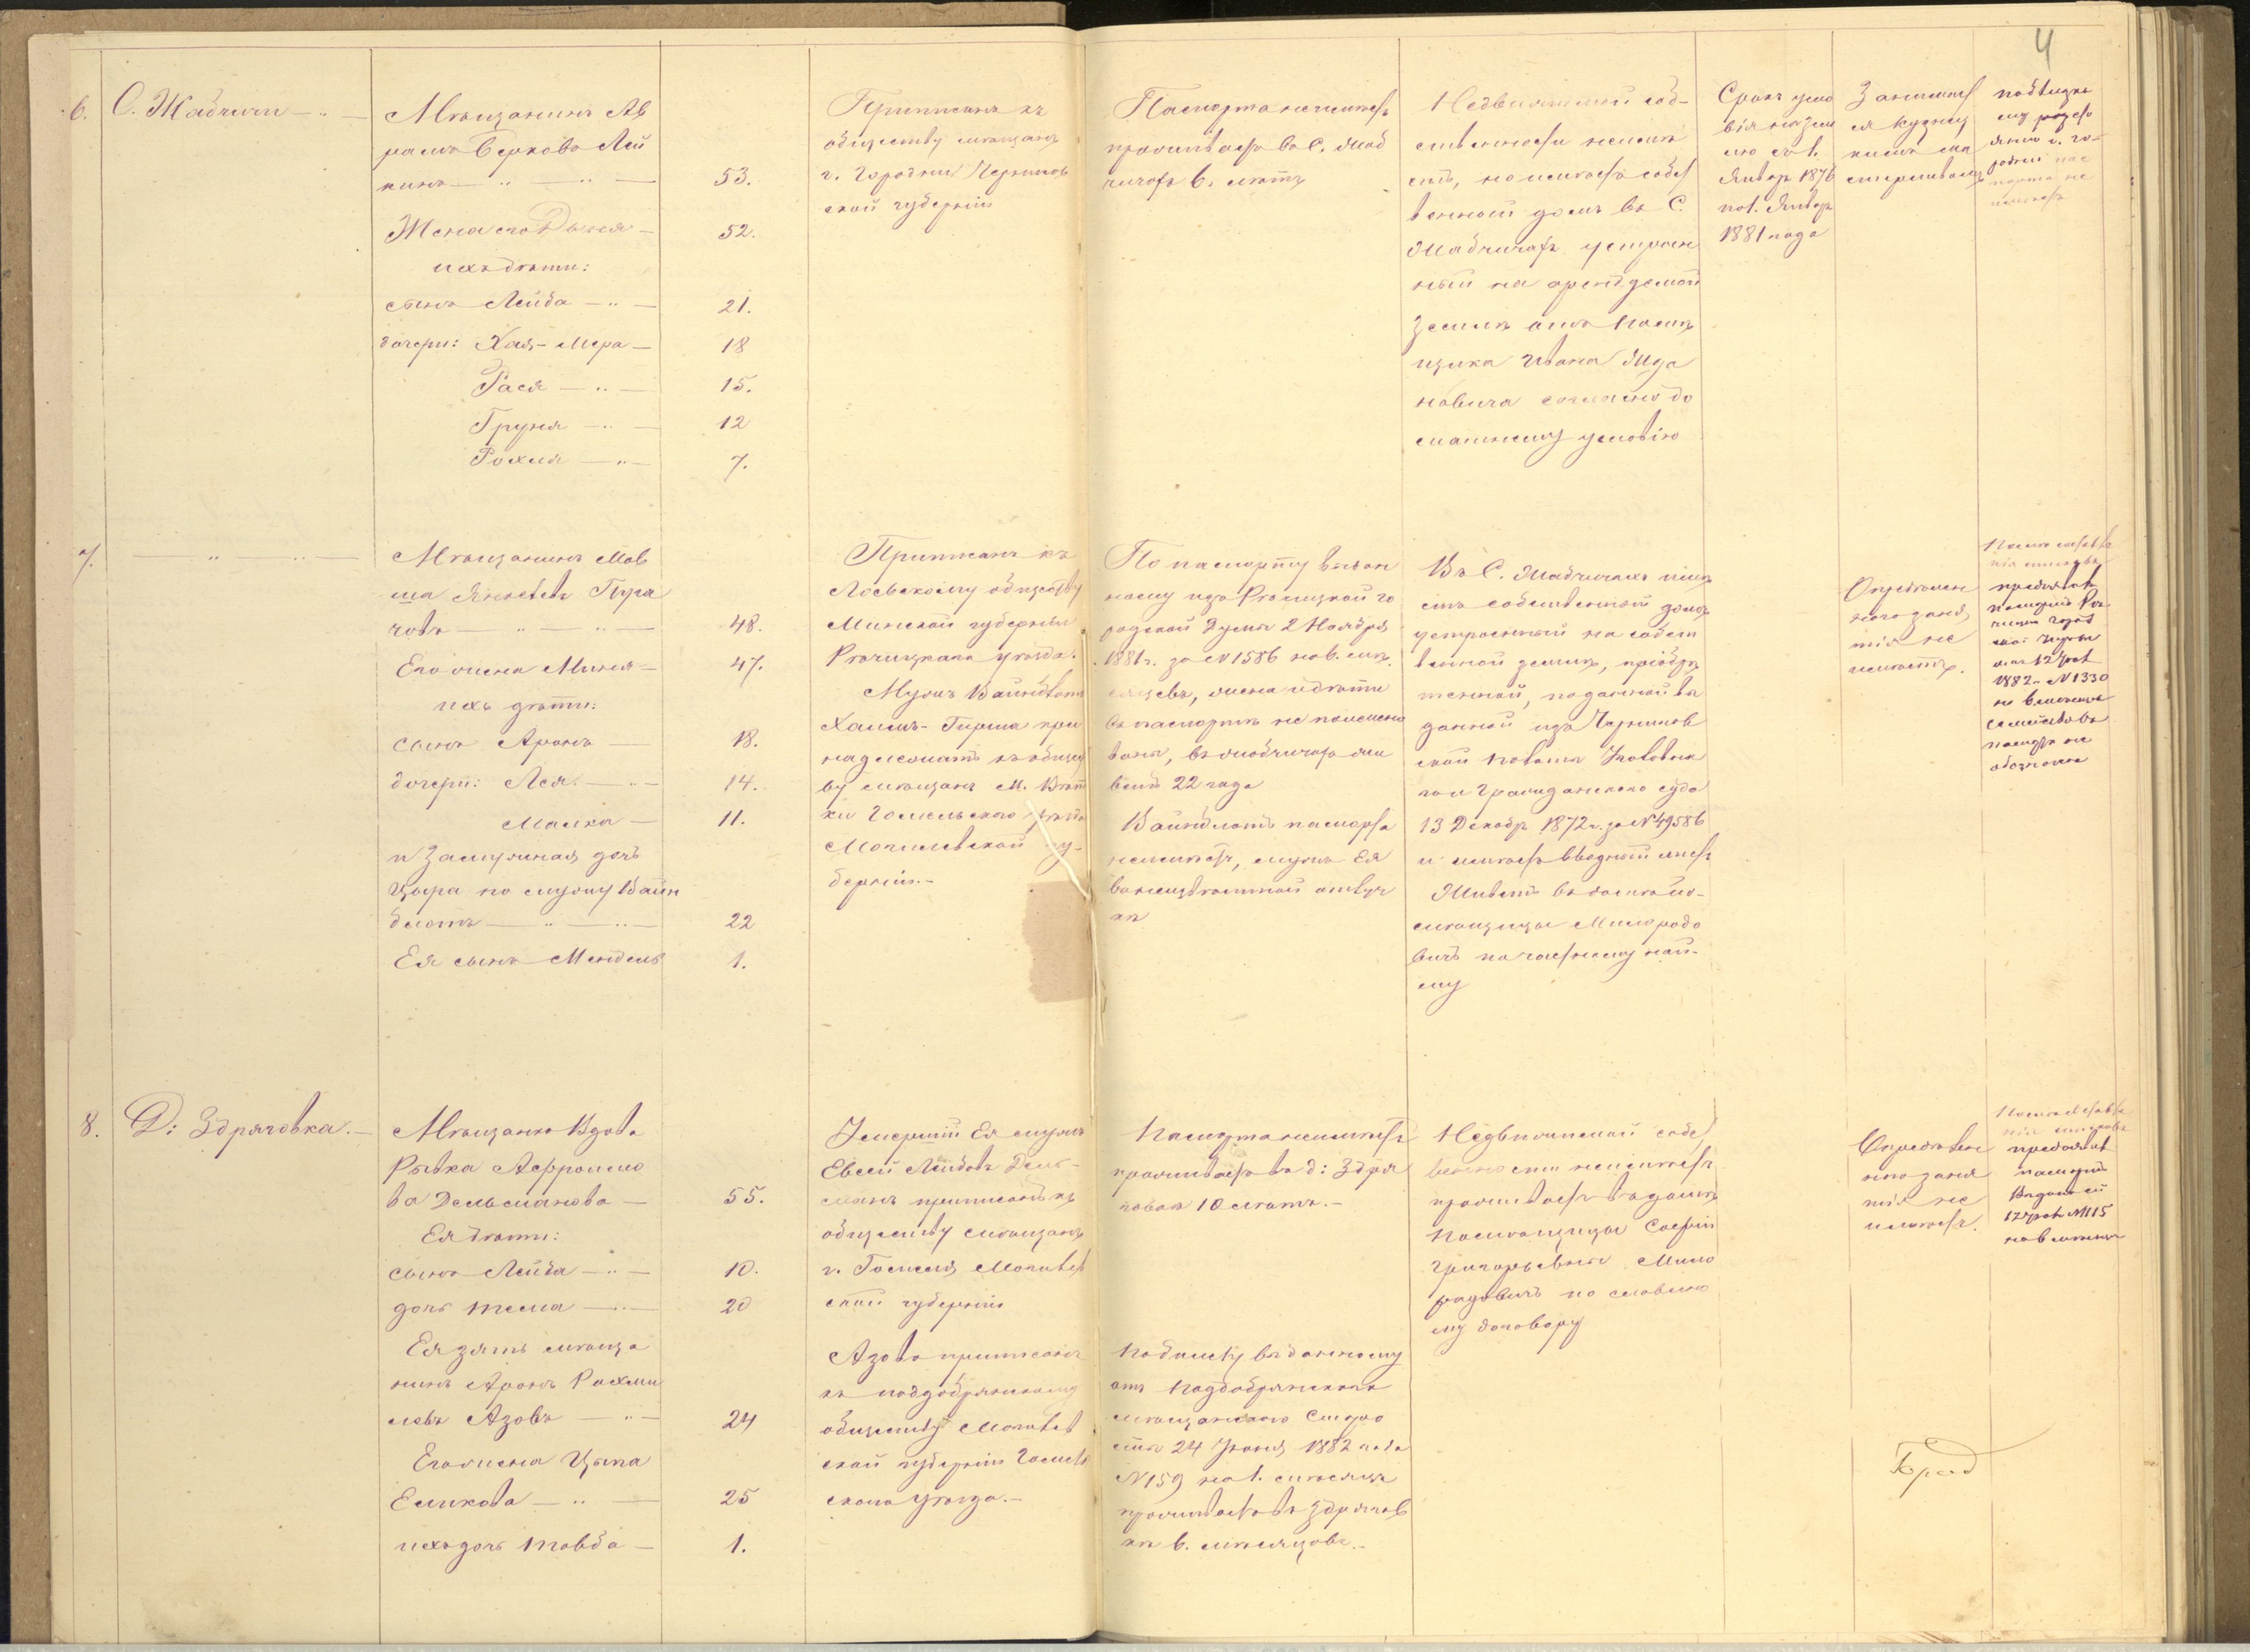 4
6.
С. Жабчичи — " —
Мѣщанинъ Ав
рамъ Берковъ Лей
кинъ — " — " — 53.
Жена его Дыня — 52.
ихъ дѣти:
сынъ Лейба — " — 21.
дочери: Хая-Мера — 18
Рася — " — 15.
Груня — " — 12
Рохля — " — 7.
Приписанъ къ
обществу мѣщанъ
г. Городни Чернигов
ской губерніи
Паспорта неимѣетъ
проживаетъ въ С. Жаб
чичахъ 6. лѣтъ
Недвижимой соб-
ственности неимѣ
етъ, но имѣетъ собст
венный домъ въ С.
Жабчичахъ устроен
ный на арендуемой
землѣ отъ помѣ
щика Ивана Жда
новича согласно до
машнему условію
Срокъ усло
вія на зем
лю съ 1.
Январ 1876
по 1. Январ
1881 года
Занимает
ся кузнеч
нымъ ма
стерствомъ
г. Го-
родни пас
порта не
имѣетъ
7.
— " — " —
Мѣщанинъ Мов
ша Янкелевъ Пуга
човъ — " — " — 48.
Его жена Миня — 47.
ихъ дѣти:
сынъ Аронъ — 18.
дочери: Лея — " — 14.
Малка — 11.
и замужная дочь
Цыра по мужу Вайн
блатъ — " — " — 22
Ея сынъ Мендель 1.
Приписанъ къ
Лоевскому обществу
Минской губерніи
Рѣчицкаго уѣзда.
Мужъ Вайнблатъ
Хаимъ-Гирша при
надлежитъ къ общест
ву мѣщанъ м. Вѣт
ки Гомельского уѣзда
Могилевской гу-
берніи.—
По паспорту выдан
ному изъ Рѣчицкой го
родской Думы 2 Ноября
1881 г. за № 1586 на 6. мѣ
сяцевъ, жена и дѣти
въ паспортѣ не поимено
ваны, въ Жабчичахъ жи
ветъ 22 года
Вайнблатъ паспорта
неимѣетъ, мужъ Ея
въ неизвѣстной отлуч
кѣ
Въ С. Жабчичахъ имѣ
етъ собственный домъ
устроенный на собст
венной землѣ, пріобрѣ
тенной, по данной вы
данной изъ Чернигов
ской Палаты Уголовна
го и Гражданского суда
13 Декабр 1872 г. за № 49586
и имѣетъ вводный листъ
Живетъ въ домѣ по-
мѣщицы Милорадо
вичъ по частному най-
му
Опредѣлен
ного заня
тія не
имѣетъ.
предъявилъ
паспортъ Рѣ
чицкой город
ской Думы
1882 г. № 1330
на 6 мѣсяцевъ
семейство въ
паспортѣ не
обозначено
8.
Д: Здряговка. —
Мѣщанка Вдова
Рывка Афроимо
ва Дельманова — 55.
Ея дѣти:
сынъ Лейба — " — 10.
дочь Тема — " — 20
Ея зять мѣща
нинъ Аронъ Рахми
левъ Азовъ — " — 24
Его жена Цыпа
Еликова — " — 25
ихъ дочь Товба — 1.
Умершій Ея мужъ
Евсей Лейбовъ Дель-
манъ приписанъ къ
обществу мѣщанъ
г. Гомеля Могилев
ской губерніи
Азовъ приписанъ
къ поддобрянскому
обществу Могилев
ской губерніи Гомель
скаго уѣзда.—
Паспорта неимѣетъ
проживаетъ въ д: Здря
говкѣ 10 лѣтъ.—
По билету выданному
отъ Поддобрянскаго
мѣщанского Старо
сты 24 Іюня 1882 года
№ 159 на 1. мѣсяцъ
проживаетъ въ Здрягов
кѣ 6. мѣсяцовъ.—
Недвижимой собст
венности неимѣетъ
проживаетъ въ домѣ
помѣщицы Софіи
Григорьевны Мило
радовичъ по словесно
му договору
Опредѣлен
ного заня
тія не
имѣетъ.
предъявила
паспортъ
выданный
№ 1115
на 6 мѣсяцевъ